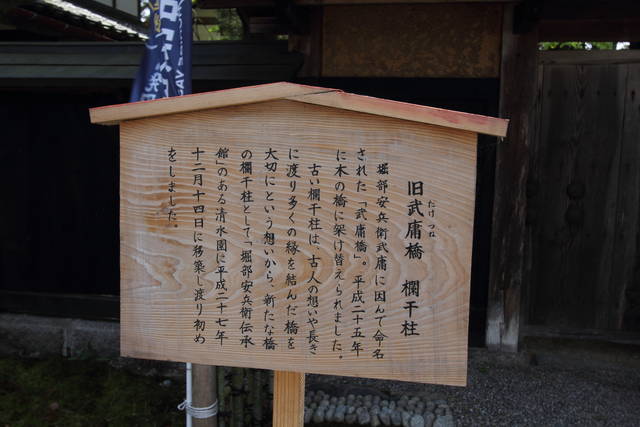 旧武庸橋　欄干柱
たけ つね
堀部安兵衛武庸に因んで命名
された「武庸橋」。平成二十五年
に木の橋に架け替えられました。
古い欄干柱は、古人の想いや長き
に渡り多くの縁を結んだ橋を
大切にという想いから、新たな橋
の欄干柱として「堀部安兵衛伝承
館」のある清水園に平成二十七年
十二月十四日に移築し渡り初め
をしました。